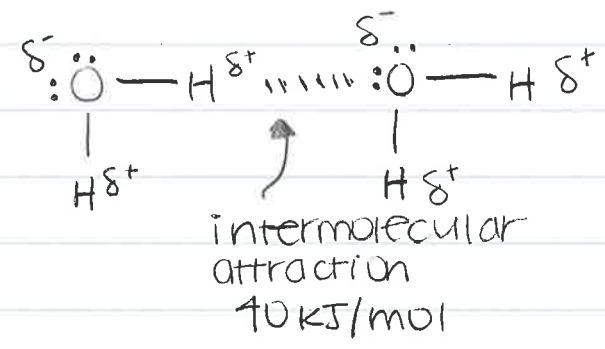 δ- δ-
:Ö — H δ+ ıııııı :Ö — H δ+
H δ+ H δ+
intermolecular
attraction
40 KJ/mol